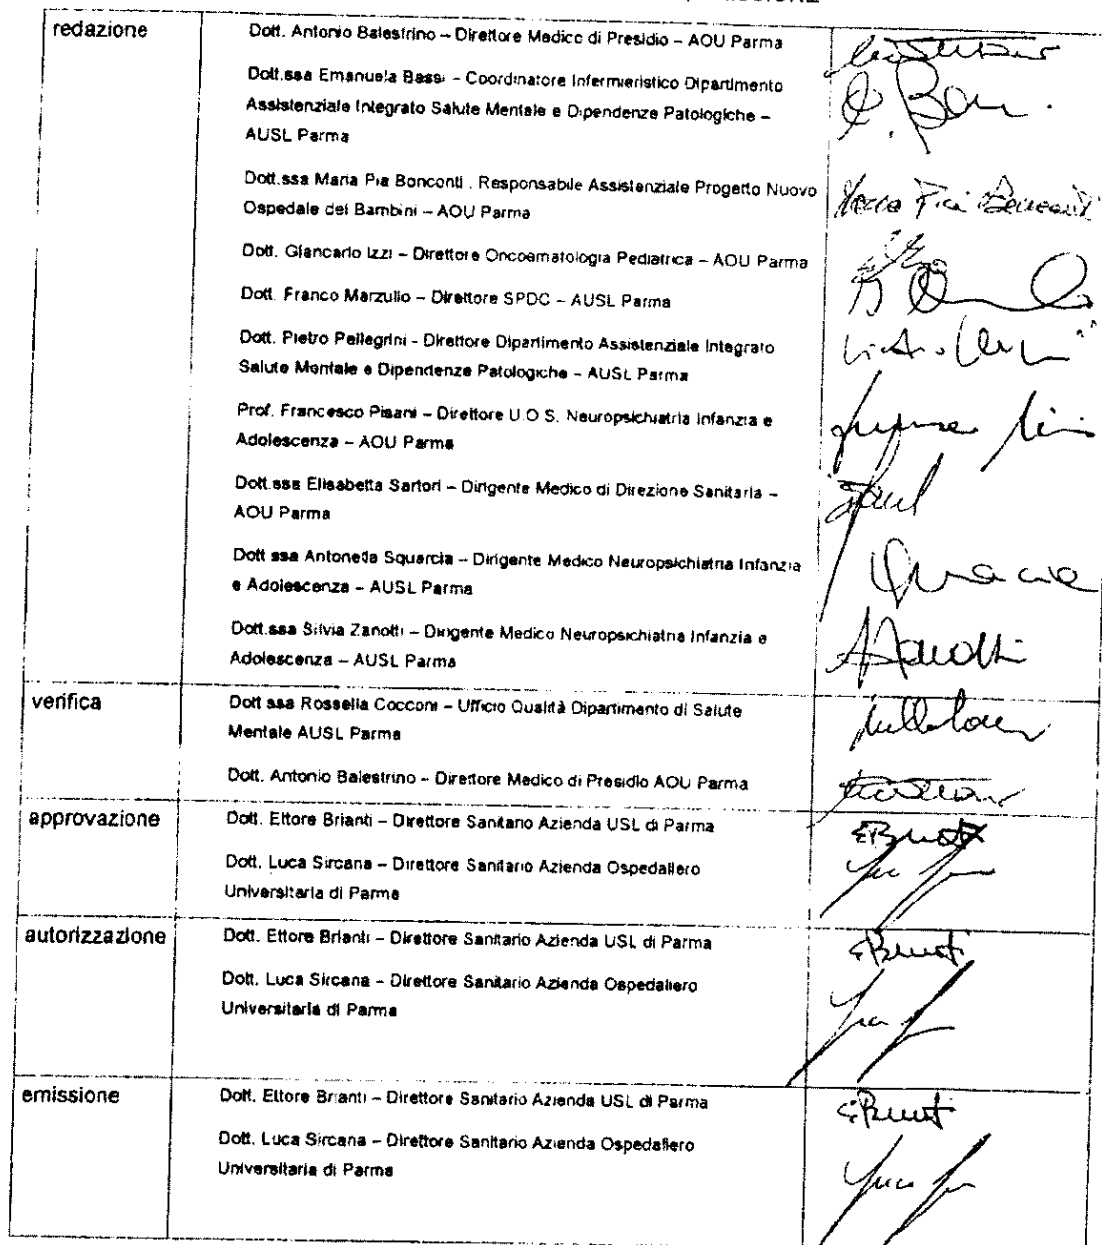 redazione
Dott. Antonio Balestrino – Direttore Medico di Presidio – AOU Parma
Dott.ssa Emanuela Bassi – Coordinatore Infermieristico Dipartimento
Assistenziale Integrato Salute Mentale e Dipendenze Patologiche –
AUSL Parma
Dott.ssa Maria Pia Bonconti . Responsabile Assistenziale Progetto Nuovo
Ospedale dei Bambini – AOU Parma
Dott. Giancarlo Izzi – Direttore Oncoematologia Pediatrica – AOU Parma
Dott. Franco Marzullo – Direttore SPDC – AUSL Parma
Dott. Pietro Pellegrini - Direttore Dipartimento Assistenziale Integrato
Salute Mentale e Dipendenze Patologiche – AUSL Parma
Prof. Francesco Pisani – Direttore U.O.S. Neuropsichiatria Infanzia e
Adolescenza – AOU Parma
Dott.ssa Elisabetta Sartori – Dirigente Medico di Direzione Sanitaria –
AOU Parma
Dott ssa Antonella Squarcia – Dirigente Medico Neuropsichiatria Infanzia
e Adolescenza – AUSL Parma
Dott.ssa Silvia Zanotti – Dirigente Medico Neuropsichiatria Infanzia e
Adolescenza – AUSL Parma
verifica
Dott ssa Rossella Cocconi – Ufficio Qualità Dipartimento di Salute
Mentale AUSL Parma
Dott. Antonio Balestrino – Direttore Medico di Presidio AOU Parma
approvazione
Dott. Ettore Brianti – Direttore Sanitario Azienda USL di Parma
Dott. Luca Sircana – Direttore Sanitario Azienda Ospedaliero
Universitaria di Parma
autorizzazione
Dott. Ettore Brianti – Direttore Sanitario Azienda USL di Parma
Dott. Luca Sircana – Direttore Sanitario Azienda Ospedaliero
Universitaria di Parma
emissione
Dott. Ettore Brianti – Direttore Sanitario Azienda USL di Parma
Dott. Luca Sircana – Direttore Sanitario Azienda Ospedaliero
Universitaria di Parma